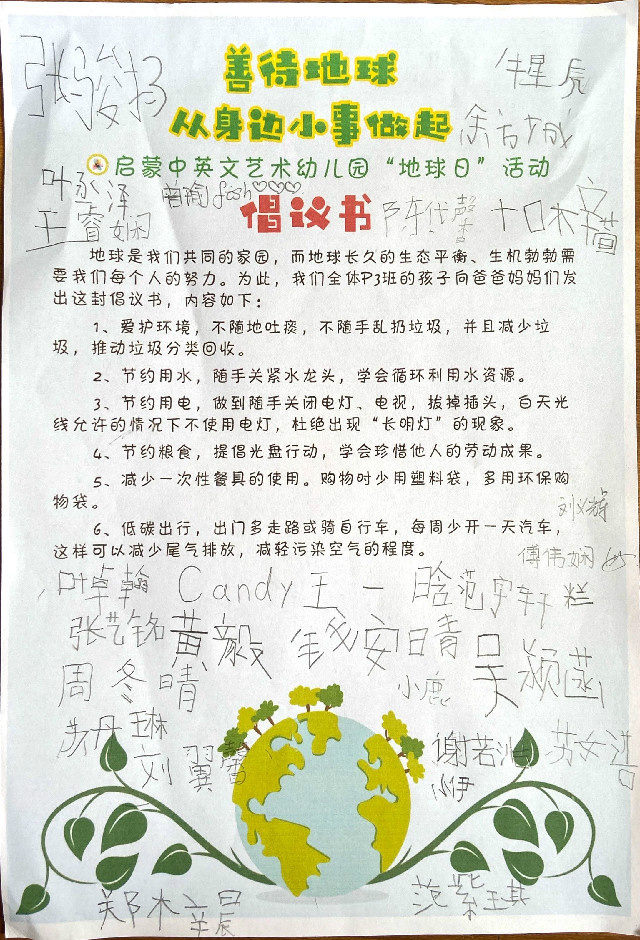 善待地球
张骏扬
牛星辰
从身边小事做起
启蒙中英文艺术幼儿园“地球日”活动
叶丞泽
fish♡♡♡
王睿娴
倡议书
陈代馨
地球是我们共同的家园，而地球长久的生态平衡、生机勃勃需
要我们每个人的努力。为此，我们全体P3班的孩子向爸爸妈妈们发
出这封倡议书，内容如下：
1、爱护环境，不随地吐痰，不随手乱扔垃圾，并且减少垃
圾，推动垃圾分类回收。
2、节约用水，随手关紧水龙头，学会循环利用水资源。
3、节约用电，做到随手关闭电灯、电视，拔掉插头，白天光
线允许的情况下不使用电灯，杜绝出现“长明灯”的现象。
4、节约粮食，提倡光盘行动，学会珍惜他人的劳动成果。
5、减少一次性餐具的使用。购物时少用塑料袋，多用环保购
物袋。
6、低碳出行，出门多走路或骑自行车，每周少开一天汽车，
这样可以减少尾气排放，减轻污染空气的程度。
傅伟娴
叶卓翰 Candy 王一晗 范宇轩
张艺铭 黄毅 钱安晴 吴颖菡
周冬晴 小鹿
苏丹琳 刘翼馨 谢若汕 苏女浩
小伊
郑木辛晨 范紫琪